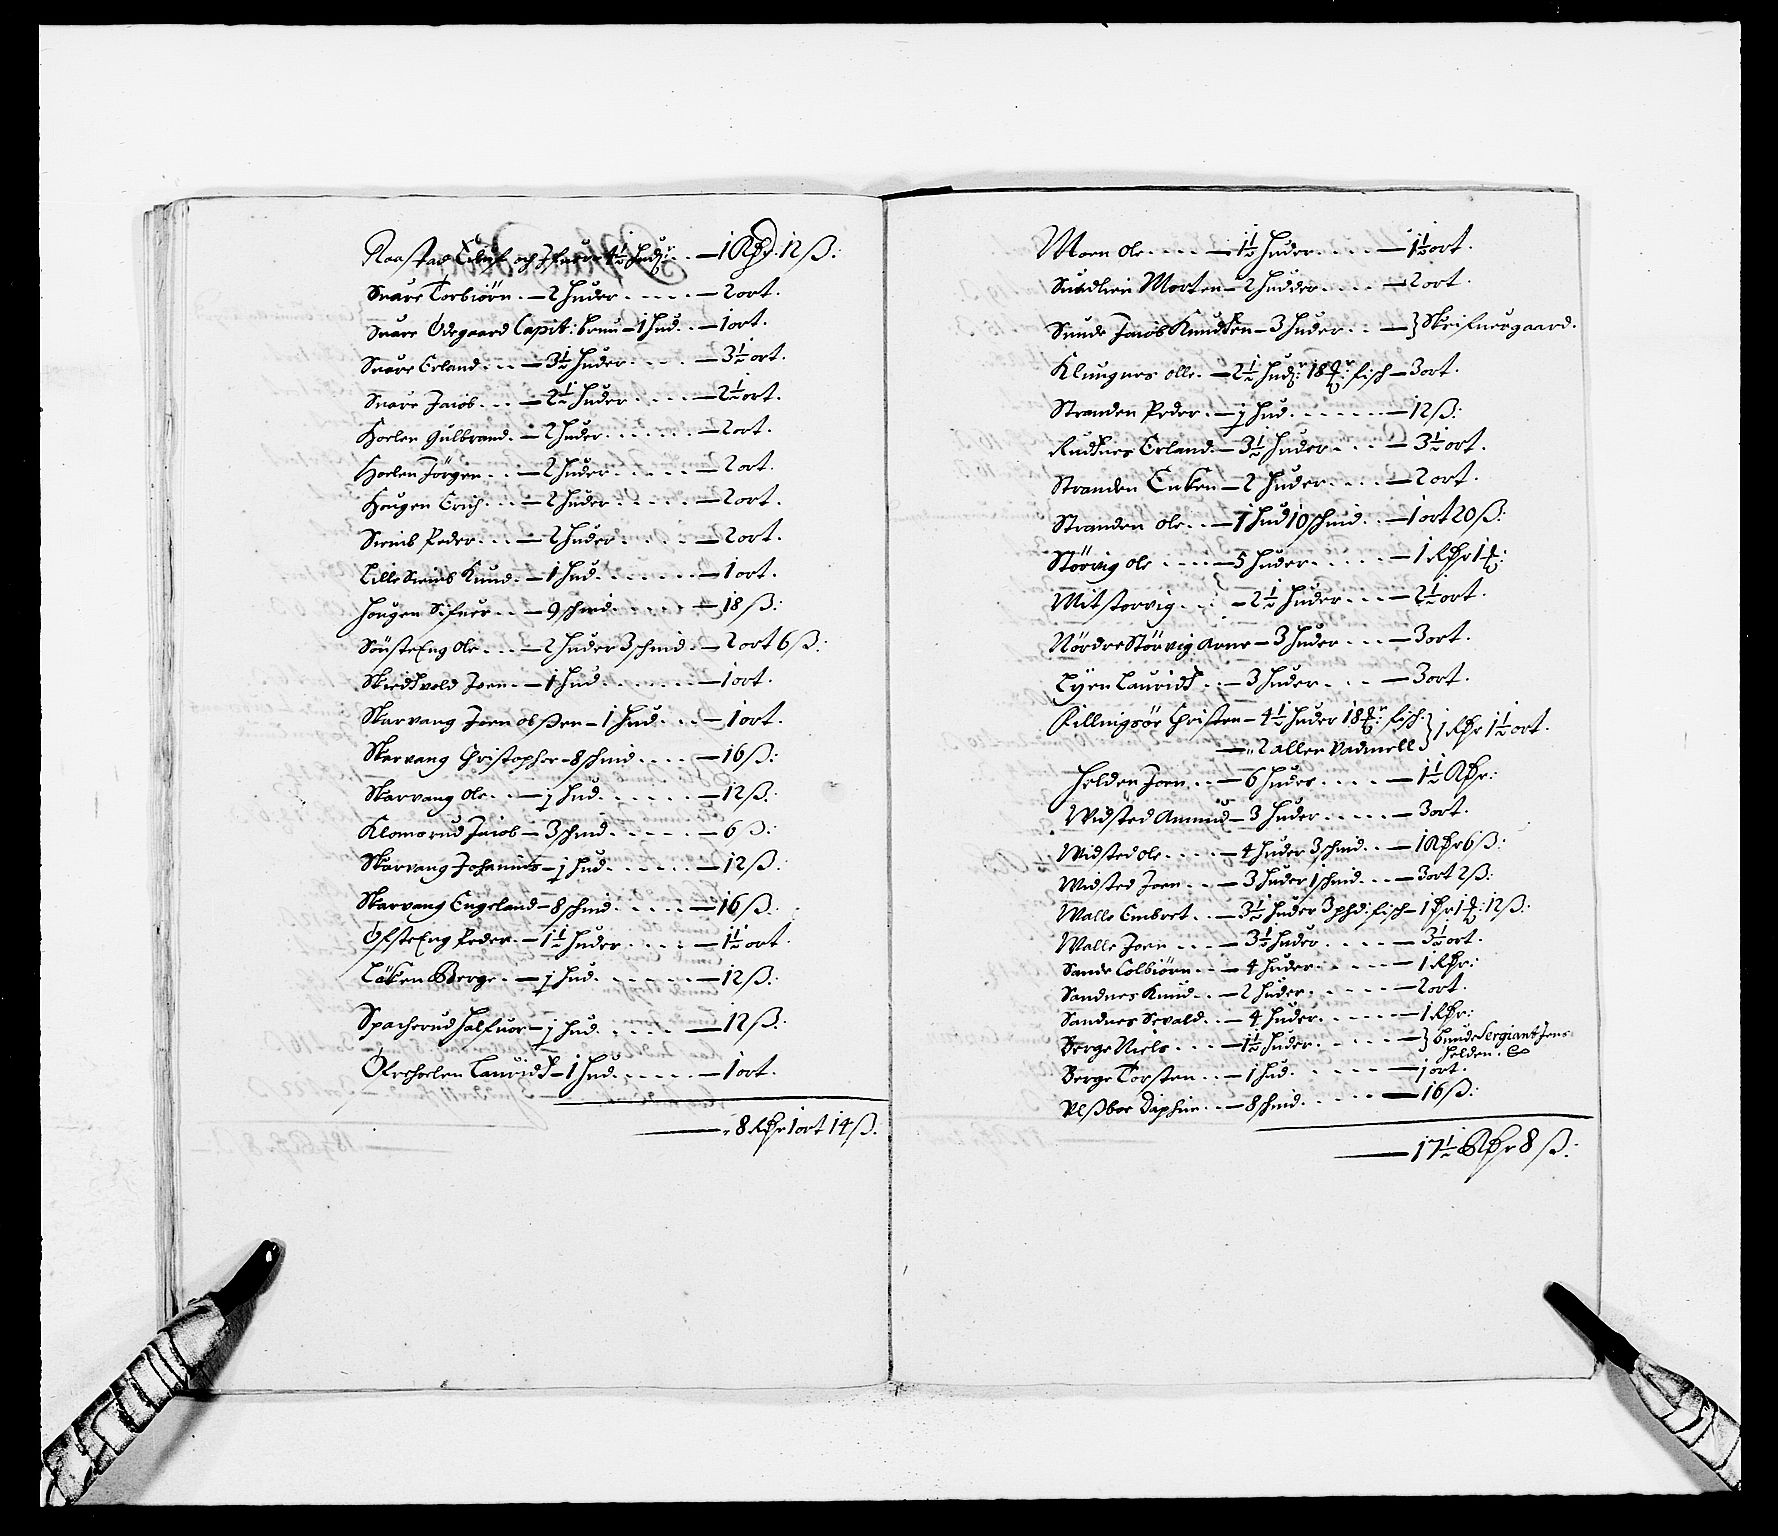 Raastad Eiluf och Ifuer 4½ Hudr: — 1 Rdr. 12 ß:
Snare Torbiörn — 2 Huder — 2 ort.
Snare Ödegaard Capit: — 1 Hud — 1 ort.
Snare Erland — 3½ Huder — 3½ ort.
Snare Jacob — 2½ Huder — 2½ ort.
Hoelen Gulbrand — 2 Huder — 2 ort.
Hoelen Jörgen — 2 Huder — 2 ort.
Hougen Erich — 2 Huder — 2 ort.
Simb Peder — 2 Huder — 2 ort.
Lille Simb Knud — 1 Hud — 1 ort.
Hougen Sifuer — 9 schind — 18 ß:
Sönste Eng Ole — 2 Huder 3 schind — 2 ort 6 ß:
Skiedsvold Joen — 1 Hud — 1 ort.
Skarvang Joen olßen — 1 Hud — 1 ort.
Skarvang Christopher — 8 schind — 16 ß:
Skarvang Ole — j Hud — 12 ß:
Klomerud Jacob — 3 schind — 6 ß:
Skarvang Johannis — j Hud — 12 ß:
Skarvang Engeland — 8 schind — 16 ß:
Öfste Eng Peder — 1½ Huder — 1½ ort.
Löken Berge — j Hud — 12 ß:
Spacherud Halfuor — j Hud — 12 ß:
Öfrehoelen Lauridt — 1 Hud — 1 ort.
— 8 Rdr 1 ort 14 ß.
Moen Ole — 1½ Huder — 1½ ort.
Sundlien Morten — 2 Hudder — 2 ort.
Sunde Jacob Knudsen — 3 Huder — } Skrifuergaard.
Klungnes Olle — 2½ Hudr: 18 fisch — 3 ort.
Stranden Peder — j Hud — 12 ß:
Rudsnes Erland — 3½ Huder — 3½ ort.
Stranden Encken — 2 Huder — 2 ort.
Stranden Ole — 1 Hud 10 schind — 1 ort 20 ß:
Störvig Ole — 5 Huder — 1 Rdr 1
Mitstorvig — 2½ Huder — 2½ ort.
Nördre Störvig Arne — 3 Huder — 3 ort.
Lyen Lauridt — 3 Huder — 3 ort.
Killingsör Christen — 4½ Huder 18 fisch: } 1 Rdr 1½ ort.
— 2 allen Vadmell }
Helden Joen — 6 Huder — 1½ Rdr:
Widsted Anmund — 3 Huder — 3 ort.
Widsted Ole — 4 Huder 3 schind — 1 Rdr 6 ß:
Widsted Joen — 3 Huder 1 schind — 3 ort 2 ß:
Walle Embret — 3½ Huder 3 phd: fisch — 1 dr 1 12 ß:
Walle Joen — 3½ Huder — 3½ ort.
Sande Colbiörn — 4 Huder — 1 Rdr:
Sandnes Knud — 2 Huder — 2 ort.
Sandnes Sevald — 4 Huder — 1 Rdr:
Berge Niels — 1½ Huder — } Sergiant Jens
Helden.
Berge Torsten — 1 Hud — 1 ort.
Daphin — 8 schind — 16 ß:
— 17½ Rdr 8 ß: